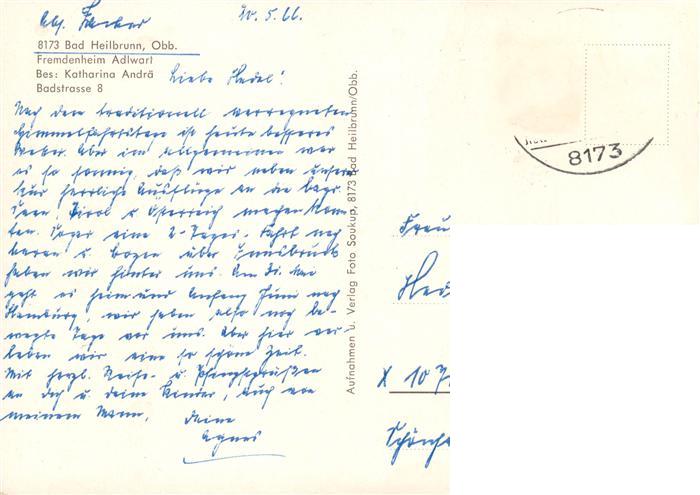 Abs.
20.5.66.
8173 Bad Heilbrunn, Obb.
Fremdenheim Adlwarl
Bes: Katharina Andrä
Badstrasse 8
Liebe Hedel!
Nach dem traditionell verregneten
Himmelfahrtstag ist heute besseres
Wetter. Aber im Allgemeinen war
es so sonnig, daß wir neben unserer
Kur herrliche Ausflüge an die bayr.
Seen, Tirol u Österreich machen konn
ten. Sogar eine 2-Tages-Fahrt nach
Meran u. Bozen über Innsbruck
haben wir hinter uns. Am 31. Mai
geht es heim und Anfang Juni nach
Hamburg, wir haben also noch be-
wegte Tage vor uns. Aber hier ver-
leben wir eine so schöne Zeit.
Mit herzl. Reise- u. Pfingstgrüßen
an dich u deine Kinder, auch von
meinem Mann,
deine
Agnes
Aufnahmen u. Verlag Foto Soukup, 8173 Bad Heilbrunn/Obb.
8173
Frau
Hed
X 107
Schönh